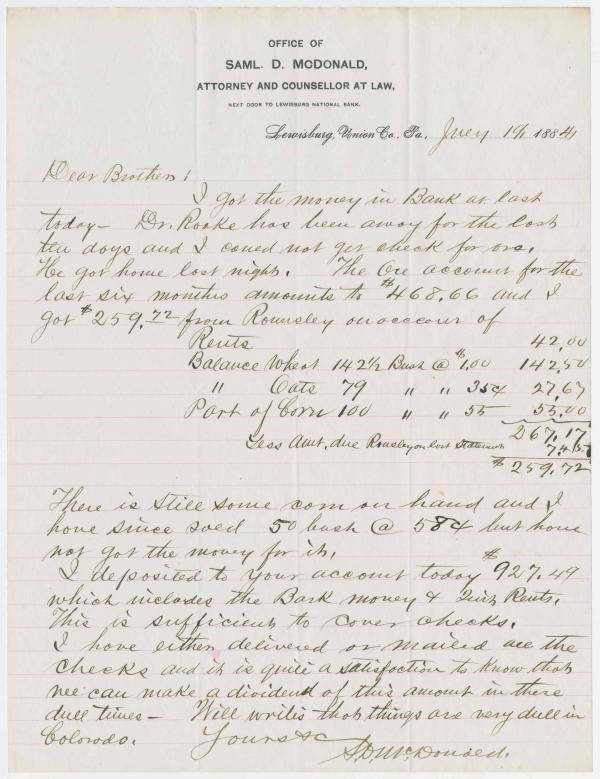 OFFICE OF
SAML. D. McDONALD,
ATTORNEY AND COUNSELLOR AT LAW,
NEXT DOOR TO LEWISBURG NATIONAL BANK.
Lewisburg, Union Co., Pa., July 19 1884
Dear Brother:
I got the money in Bank at last
today — Dr. Rooke has been away for the last
ten days and I could not get check for ore.
He got home last night. The Ore account for the
last six months amounts to $468.66 and I
got $259.72 from Rounsley on account of
Rents 42.00
Balance Wheat 142½ Bush @ $1.00 142.50
" Oats 79 " " 35¢ 27.67
Part of Corn 100 " " 55 55.00
267.17
Less Amt. due Rounsley on last Statement 7.45
$259.72
There is still some corn on hand and I
have since sold 50 bush @ 58¢ but have
not got the money for it.
I deposited to your account today $927.49
which includes the Bark money &amp; Rents.
This is sufficient to cover checks.
I have either delivered or mailed all the
checks and it is quite a satisfaction to know that
we can make a dividend of this amount in these
dull times — Will writes that things are very dull in
Colorado. Yours &c
S.D. McDonald.